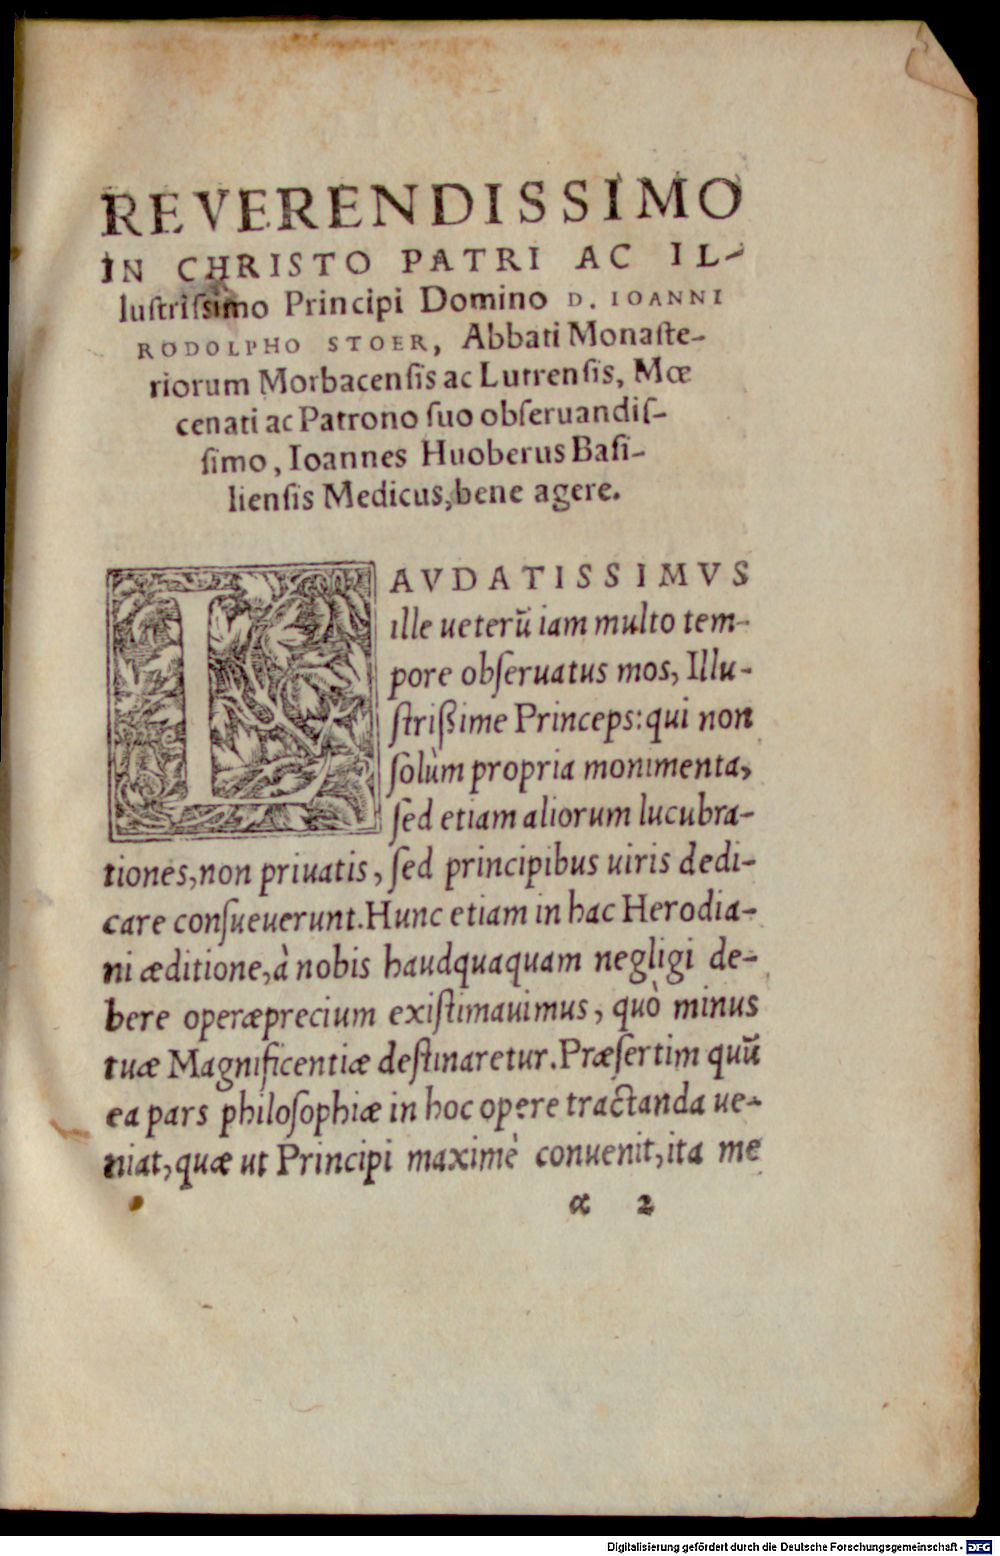 REVERENDISSIMO
IN CHRISTO PATRI AC IL-
luſtriſsimo Principi Domino D. IOANNI
RODOLPHO STOER, Abbati Monaſte-
riorum Morbacenſis ac Lutrenſis, Mœ
cenati ac Patrono ſuo obſeruandiſ-
ſimo, Ioannes Huoberus Baſi-
lienſis Medicus, bene agere.
LAVDATISSIMVS
ille ueterū iam multo tem-
pore obſeruatus mos, Illu-
ſtrißime Princeps: qui non
ſolùm propria monimenta,
ſed etiam aliorum lucubra-
tiones, non priuatis, ſed principibus uiris dedi-
care conſueuerunt. Hunc etiam in hac Herodia-
ni æditione, à nobis haudquaquam negligi de-
bere operæprecium exiſtimauimus, quò minus
tuæ Magnificentiæ deſtinaretur. Præſertim quū
ea pars philoſophiæ in hoc opere tractanda ue-
niat, quæ ut Principi maximè conuenit, ita me
α 2
Digitalisierung gefördert durch die Deutsche Forschungsgemeinschaft - DFG